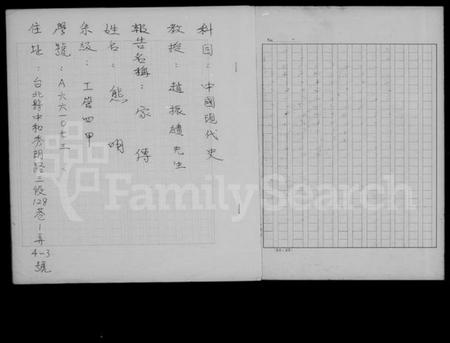 科目：中國現代史
教授：趙振績先生
報告名稱：家傳
姓名：熊明
系級：工管四甲
學號：A六六一〇七三
住址：台北縣中和秀朗路三段128巷1弄4-3號
FamilySearch